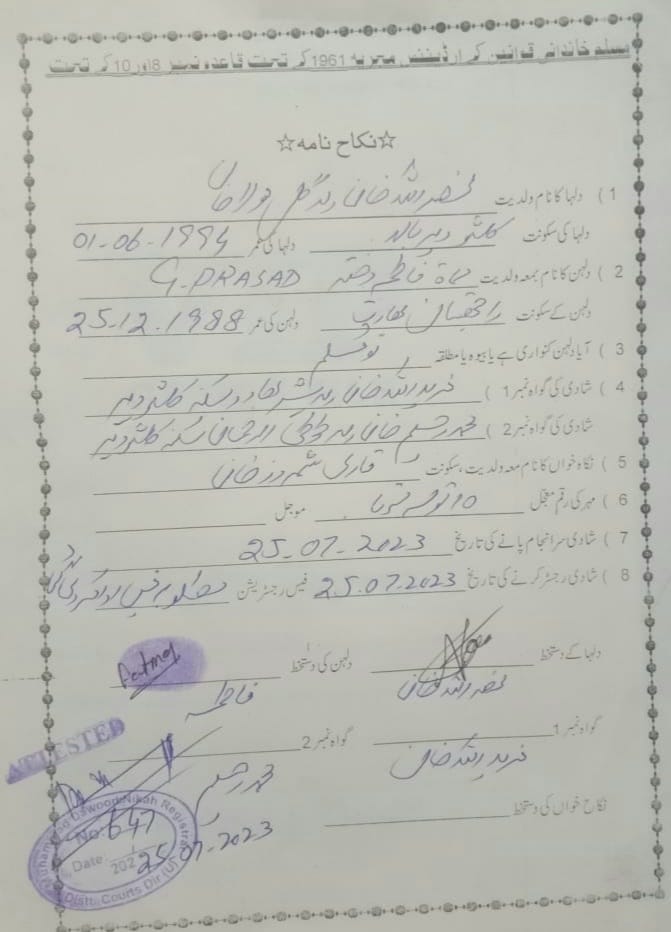 مسلم خاندانی قوانین کے آرڈیننس مجریہ 1961 کے تحت قاعدہ نمبر 8 اور 10 کے تحت
☆نکاح نامہ☆
1 ) دلہا کا نام ولدیت نصراللہ خان ولد گل مولا خان
دلہا کی سکونت کلشو دیر بالا دلہا کی عمر 01-06-1994
2 ) دلہن کا نام بمعہ ولدیت مسماۃ فاطمہ دختر G. PRASAD
دلہن کے سکونت راجھستان بھارت دلہن کی عمر 25.12.1988
3 ) آیا دلہن کنواری ہے یا بیوہ یا مطلقہ نو مسلم
4 ) شادی کی گواہ نمبر 1 ) فرید اللہ خان ولد سکنہ کلشو دیر
شادی کی گواہ نمبر 2 ) محمد رحیم خان ولد سکنہ کلشو دیر
5 ) نکاح خواں کا نام معہ ولدیت، سکونت قاری شمروز خان
6 ) مہر کی رقم معجل 10 تولہ سونا موجل
7 ) شادی سرانجام پانے کی تاریخ 25-07-2023
8 ) شادی رجسٹر کرنے کی تاریخ 25.07.2023 فیس رجسٹریشن مطلوبہ فیس ادا کر دی گئی
دلہا کے دستخط دلہن کی دستخط Fatima
نصراللہ خان فاطمہ
گواہ نمبر 1 گواہ نمبر 2
فرید اللہ خان محمد رحیم
نکاح خواں کی دستخط
ATTESTED
Muhammad Dawood Nikah Registrar
No: 647
Date: 202
25.07.2023
Distt: Courts Dir (U)